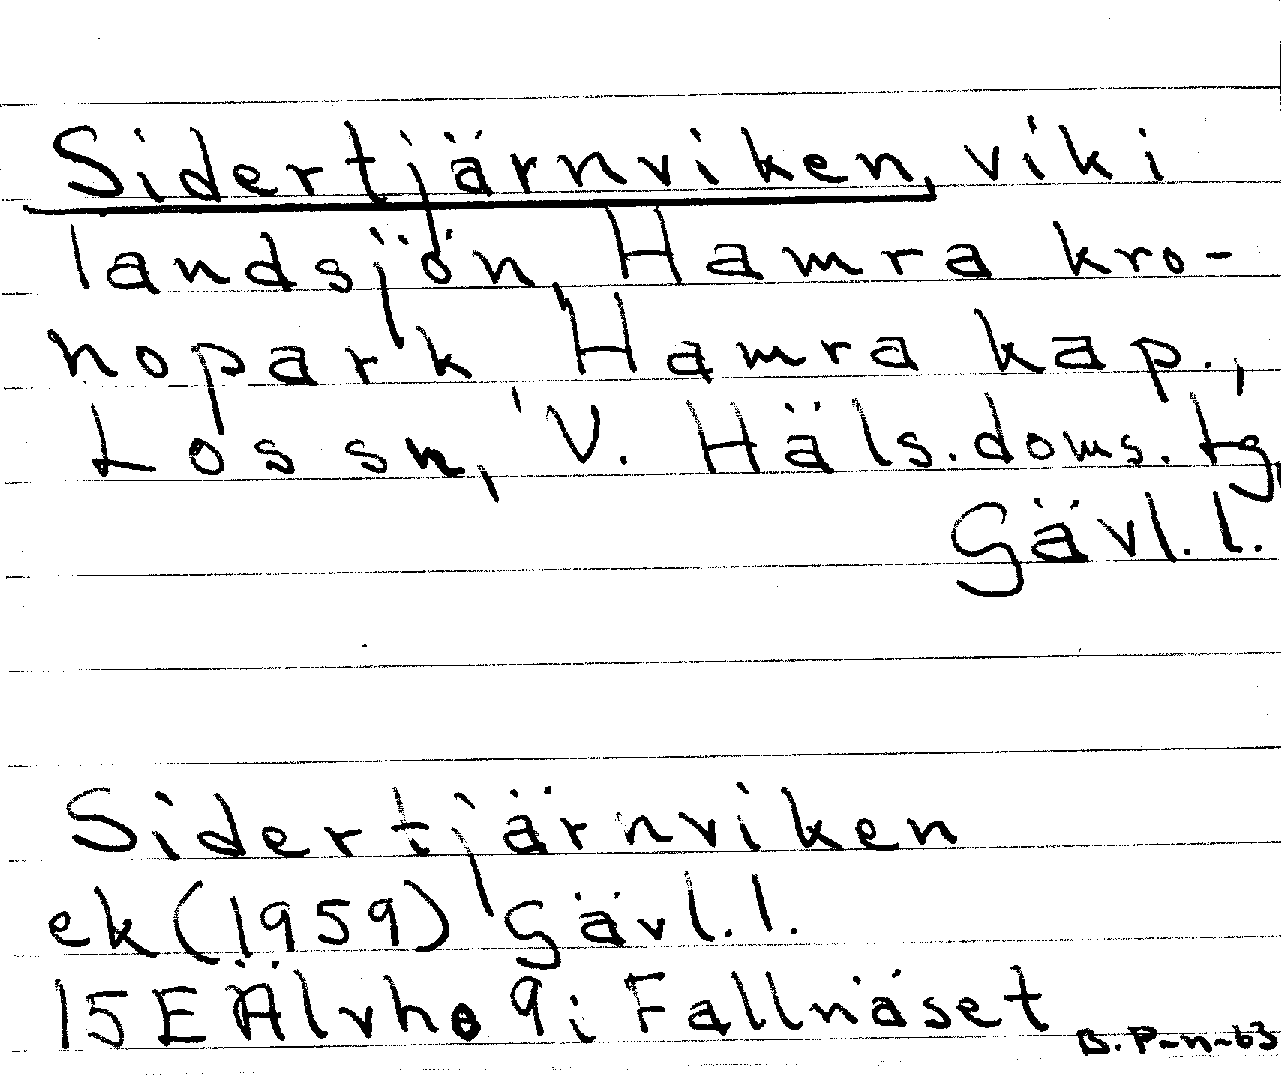 Sidertjärnviken, vik i
landsjön, Hamra kro-
nopark, Hamra kap.,
Los sn, V. Häls. doms. tg,
Gävl. l.
Sidertjärnviken
ek (1959) Gävl. l.
15E Älvho 9i Fallnäset
B. P-n-63